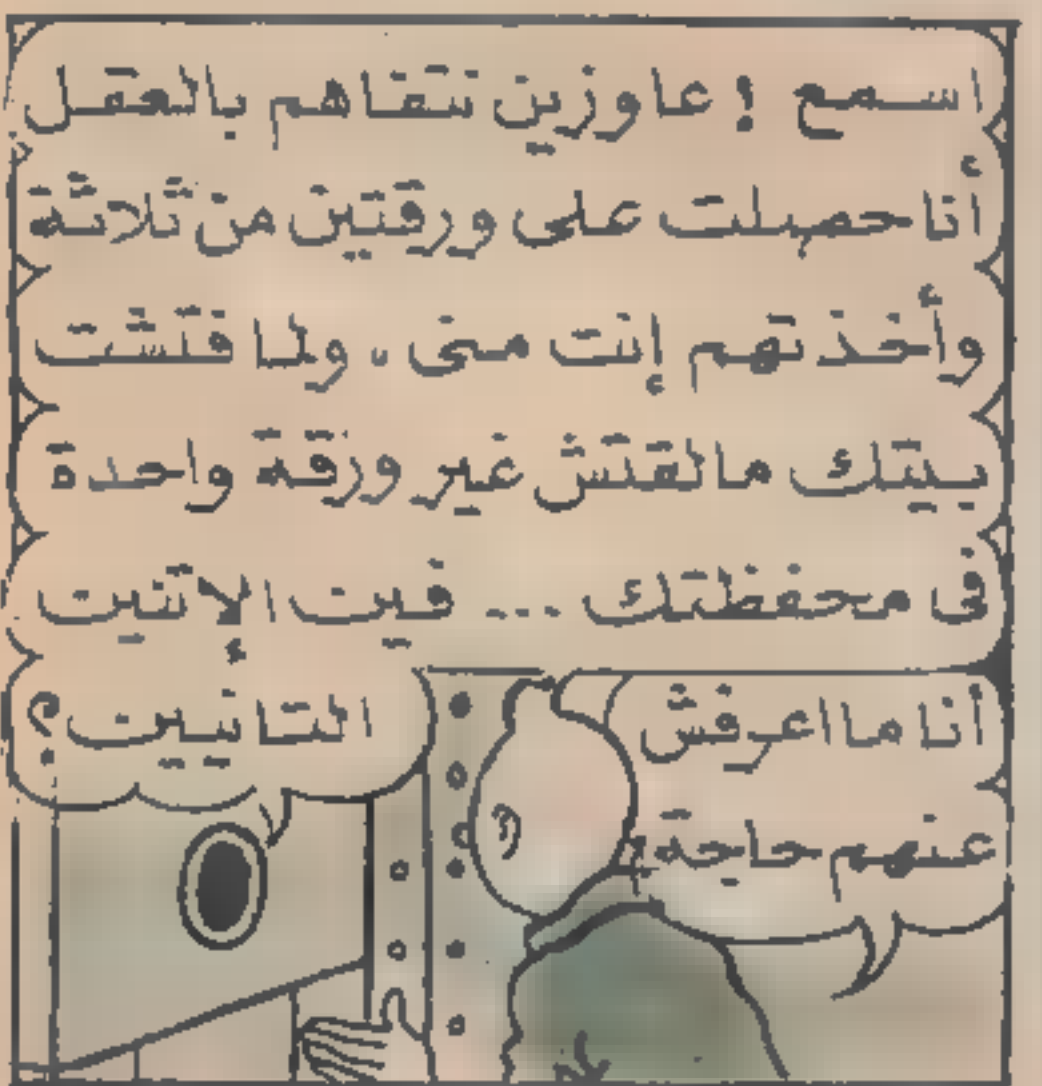 اسمع ! عاوزين نتفاهم بالعقل
أنا حصلت على ورقتين من ثلاثة
وأخذتهم إنت منى . ولما فتشت
بيتك مالقتش غير ورقة واحدة
فى محفظتك ... فين الإتنين
التانيين ؟
أنا ما اعرفش
عنهم حاجة !